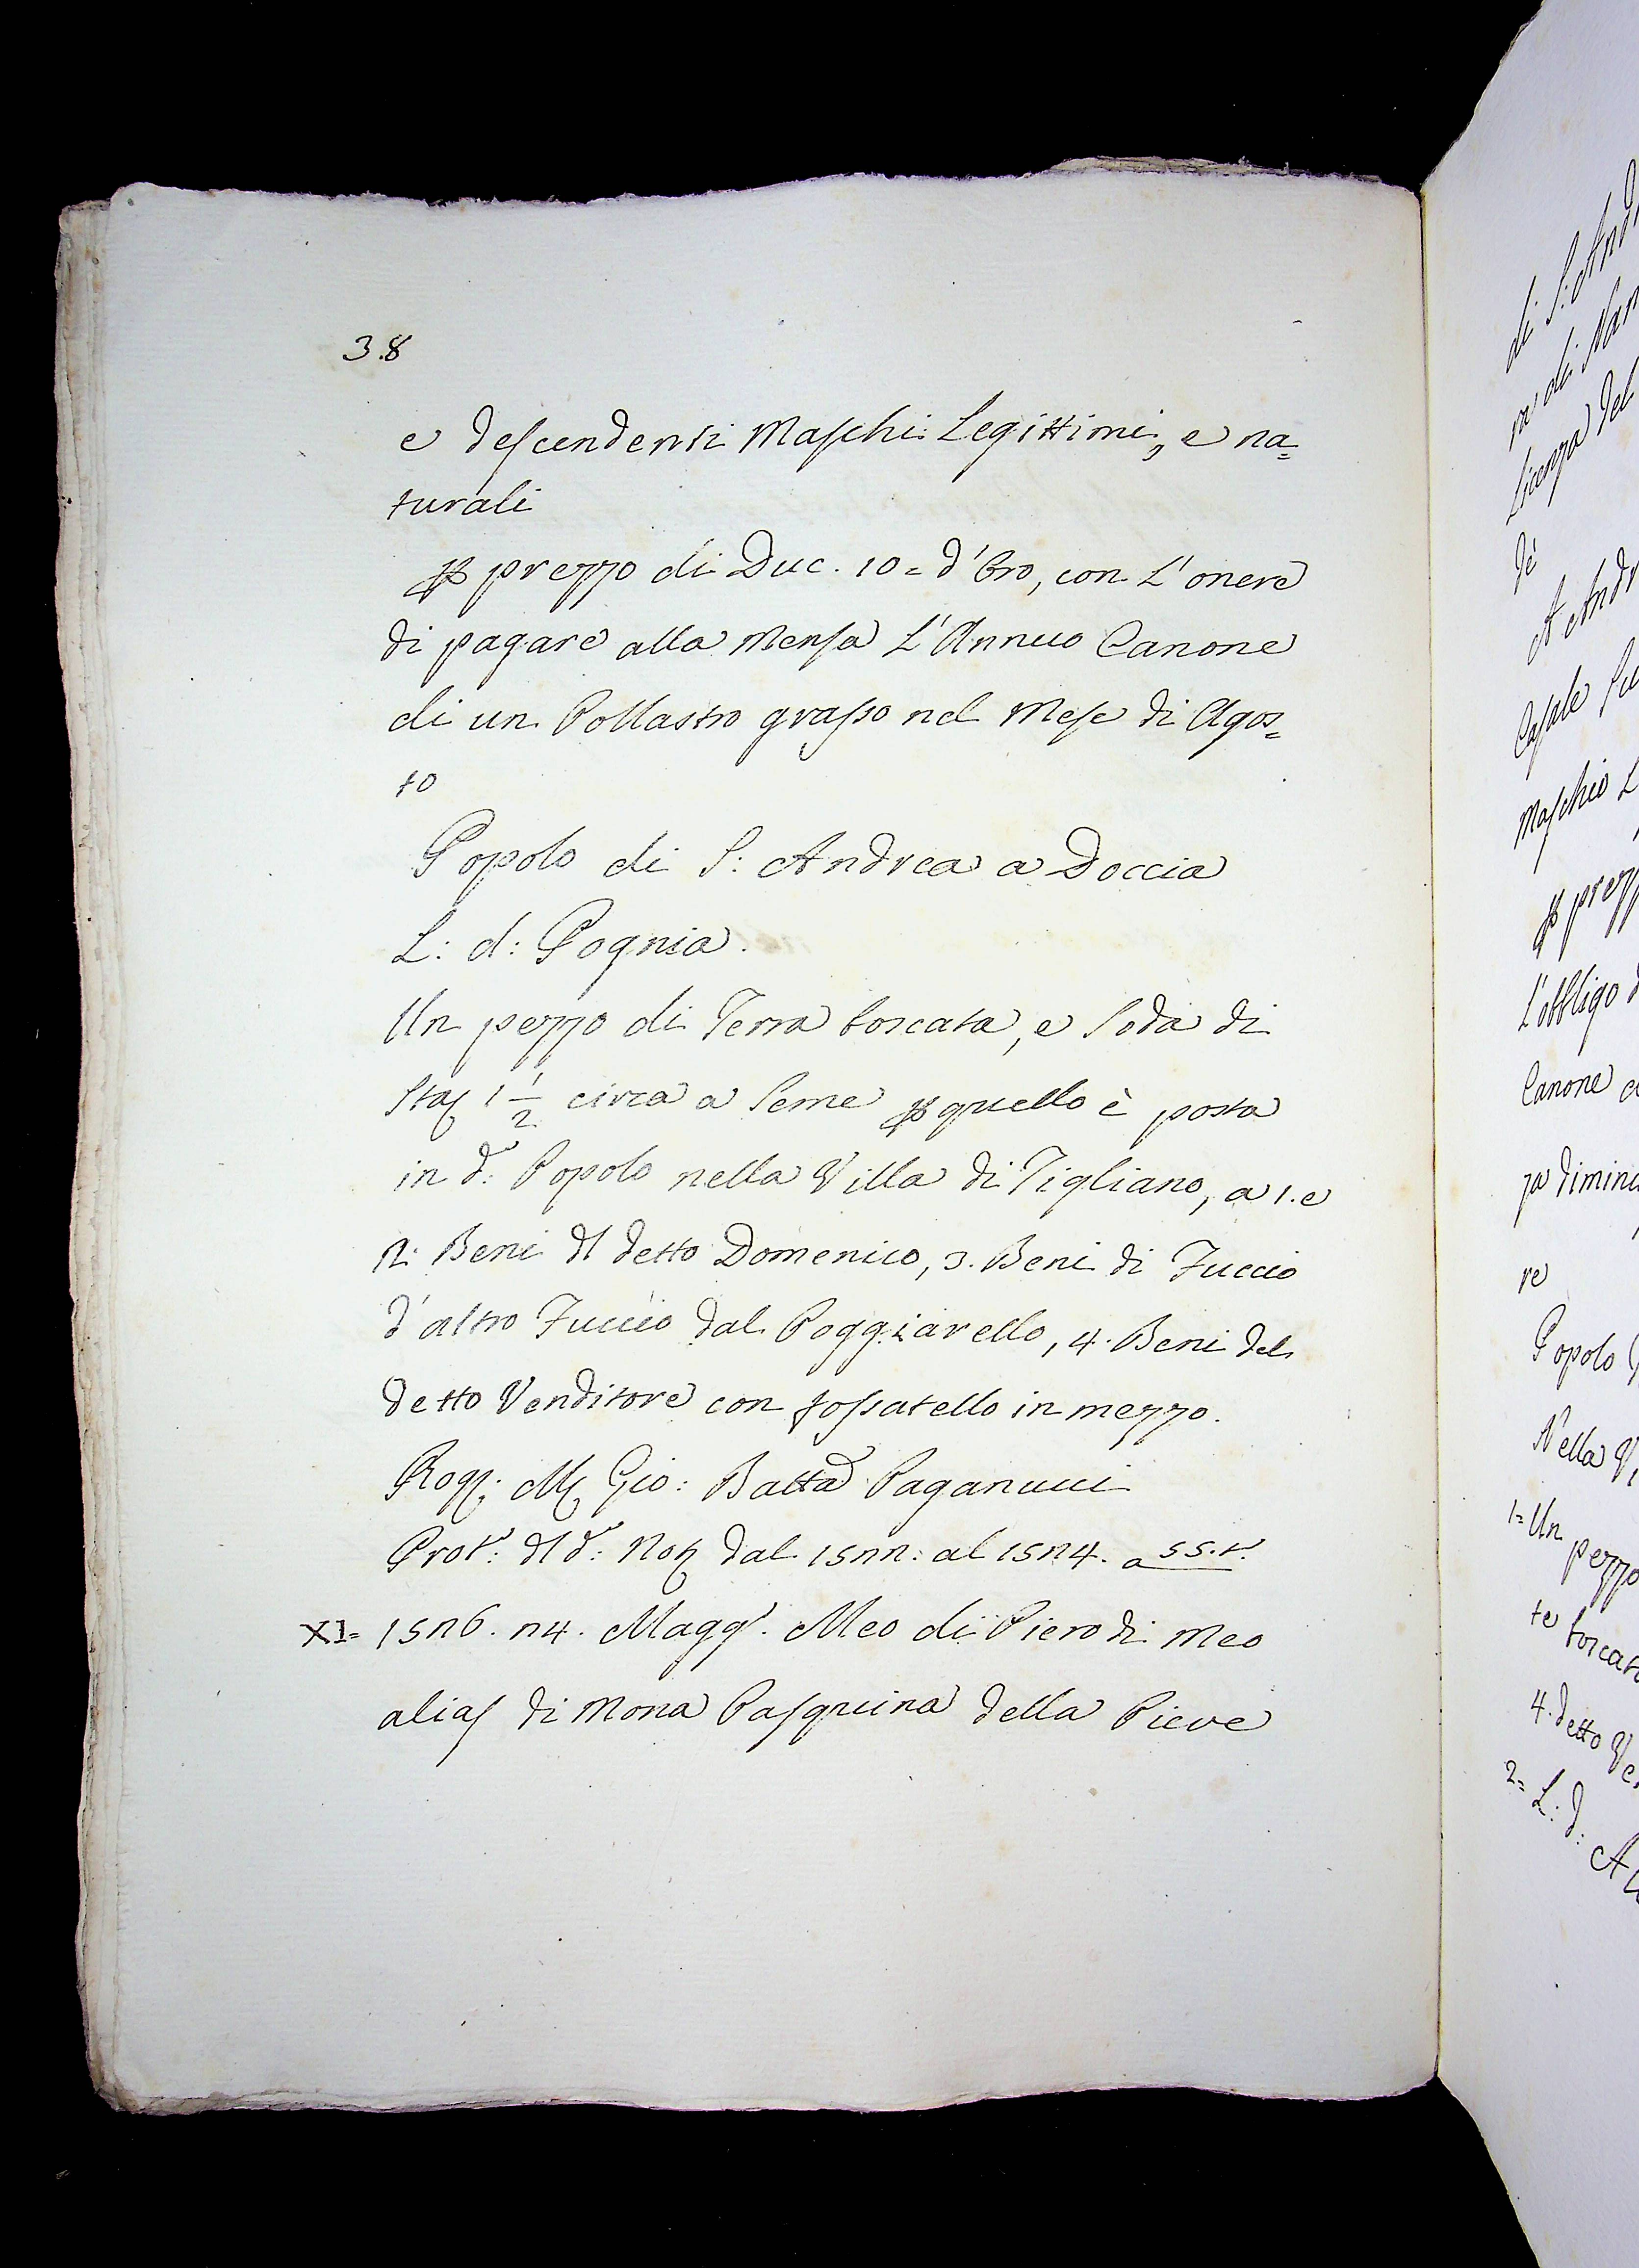 38
e descendenti Maschi Legittimi, e na=
turali
p prezzo di Duc. 10= d'Oro, con L'onere
di pagare alla Mensa L'Annuo Canone
di un Pollastro grasso nel Mese di Agos=
to
Popolo di S: Andrea a Doccia
L: d: Pognia.
Un pezzo di Terra boscata, e Soda di
Stas 1 1/2 circa a Seme p quello è posta
in d:º Popolo nella Villa di Tigliano, a 1. e
2: Beni dl detto Domenico, 3. Beni di Fuccio
d'altro Fuccio dal Poggiarello, 4. Beni del
detto Venditore con fossatello in mezzo.
Rog: M Gio: Batta Paganucci
Prot:º dl d:º Not dal 1522: al 1524. a 55.t.
XI= 1526. 24. Magg:º Meo di Piero di Meo
alias di Mona Pasquina della Pieve
di S: And
Licenza del
de'
A Andr
Casale
Maschio L
p prezz
L'obbligo d
Canone
za dimin
re
Popolo
Nella V
1= Un pezzo
te boscat
4. detto Ve
2= L: d: A